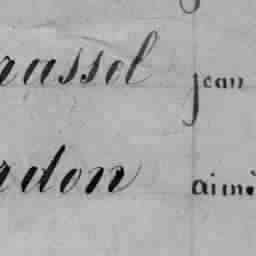 rassel jean
rdon aimé